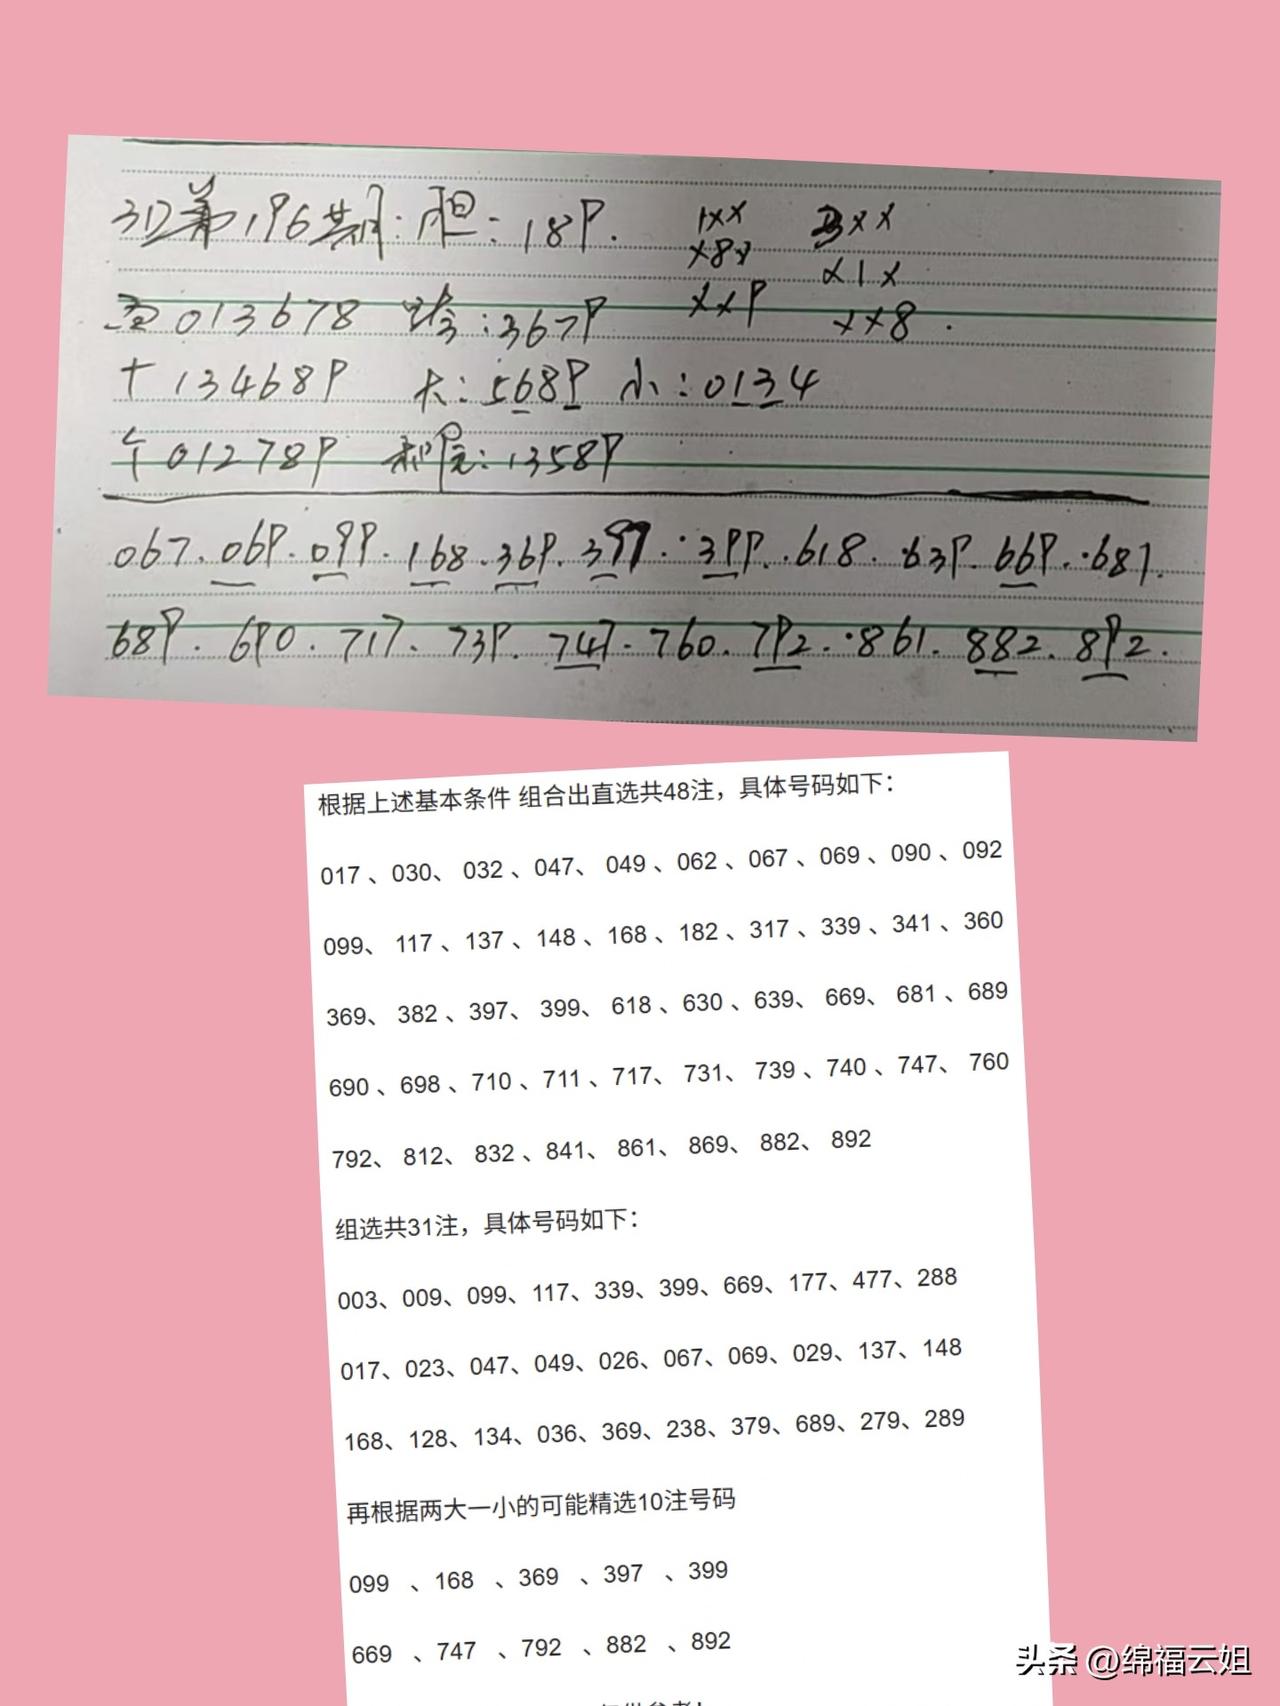 3D第196期:胆:189. 1xx 3xx
x8x x1x
百013678 跨:3679 xx9 xx8.
十134689 大:5689 小:0134
个012789 和尾:13589
067.069.099.168.369.397.399.618.639.669.681.
689.690.717.739.747.760.792.861.882.892.
根据上述基本条件 组合出直选共48注，具体号码如下：
017 、030、 032 、047、 049 、062 、067 、069 、090 、092
099、 117 、137 、148 、168 、182 、317 、339 、341 、360
369、 382 、397、 399、 618 、630 、639、 669、 681 、689
690 、698 、710 、711 、717、 731、 739 、740 、747、 760
792、 812、 832 、841、 861、 869、 882、 892
组选共31注，具体号码如下：
003、009、099、117、339、399、669、177、477、288
017、023、047、049、026、067、069、029、137、148
168、128、134、036、369、238、379、689、279、289
再根据两大一小的可能精选10注号码
099 、168 、369 、397 、399
669 、747 、792 、882 、892
头条 @绵福云姐